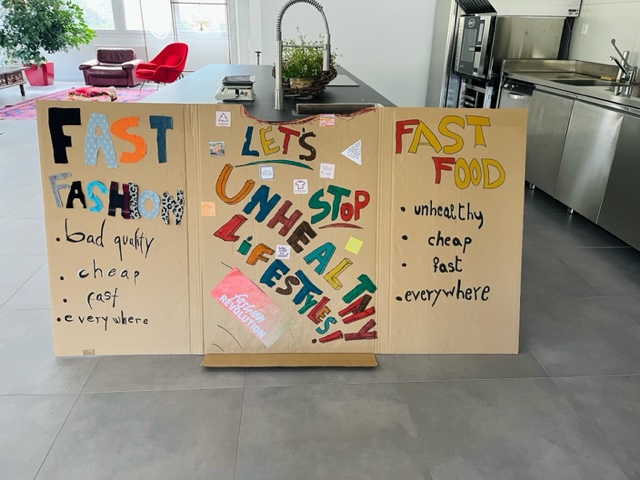 FAST
FASHION
• bad quality
• cheap
• fast
• everywhere
LET'S
STOP
UNHEALTHY
LiFESTYLES!!
FASHION
REVOLUTION
FAST
FOOD
• unhealthy
• cheap
• fast
• everywhere